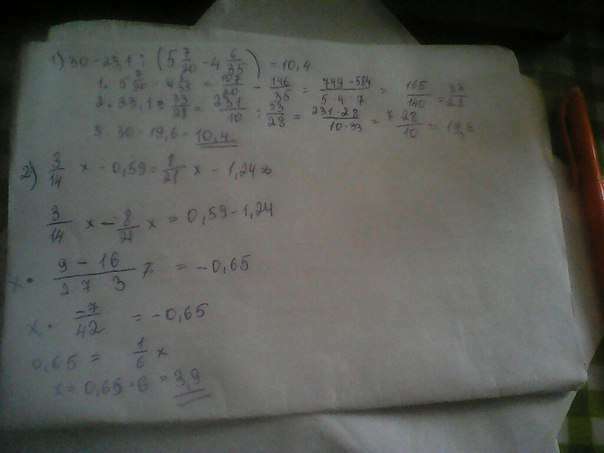 1) 30 - 23,1 : (5 7/20 - 4 6/35) = 10,4
1. 5 7/20 - 4 6/35 = 107/20 - 146/35 = 749-584/5·4·7 = 165/140 = 33/28
2. 23,1 : 33/28 = 231/10 : 33/28 = 231·28/10·33 = 7·28/10 = 19,6
3. 30 - 19,6 = 10,4
2) 3/14 x - 0,59 = 8/21 x - 1,24
3/14 x - 8/21 x = 0,59 - 1,24
x · 9 - 16/2 7 3 = -0,65
x · -7/42 = -0,65
0,65 = 1/6 x
x = 0,65 · 6 = 3,9